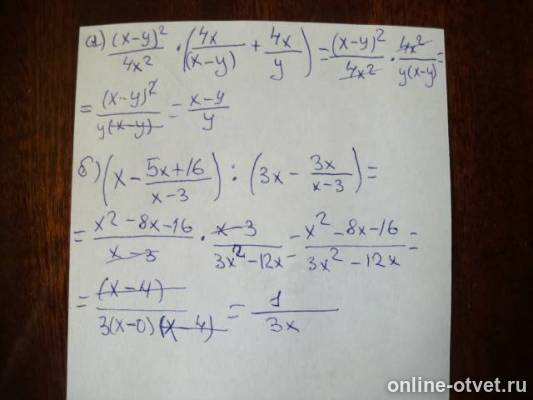 а) (x-y)²/4x² · (4x/(x-y) + 4x/y) = (x-y)²/4x² · 4x²/y(x-y) =
= (x-y)²/y(x-y) = x-y/y
б) (x - 5x+16/x-3) : (3x - 3x/x-3) =
= x²-8x-16/x-3 · x-3/3x²-12x = x²-8x-16/3x²-12x =
= (x-4)/3(x-0)(x-4) = 1/3x
online-otvet.ru